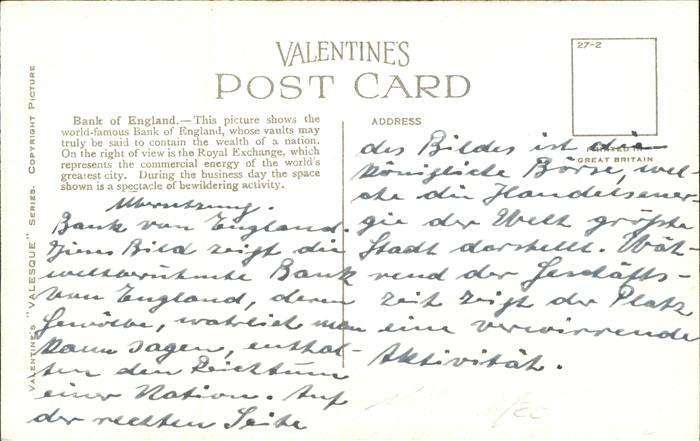 VALENTINE'S
POST CARD
27-2
PRINTED IN
GREAT BRITAIN
VALENTINE'S "VALESQUE" SERIES. COPYRIGHT PICTURE
Bank of England.—This picture shows the
world-famous Bank of England, whose vaults may
truly be said to contain the wealth of a nation.
On the right of view is the Royal Exchange, which
represents the commercial energy of the world's
greatest city. During the business day the space
shown is a spectacle of bewildering activity.
ADDRESS
Übersetzung.
Bank von England.
Bild zeigt die
weltberühmte Bank
von England, deren
Gewölbe, wahrlich man
kann sagen, enthal-
ten den Reichtum
einer Nation. Auf
der rechten Seite
des Bildes ist die
königliche Börse, wel-
che die Handelsener-
gie der Welt größte
Stadt darstellt. Wäh-
rend der Geschäfts-
zeit zeigt der Platz
eine verwirrende
Aktivität.